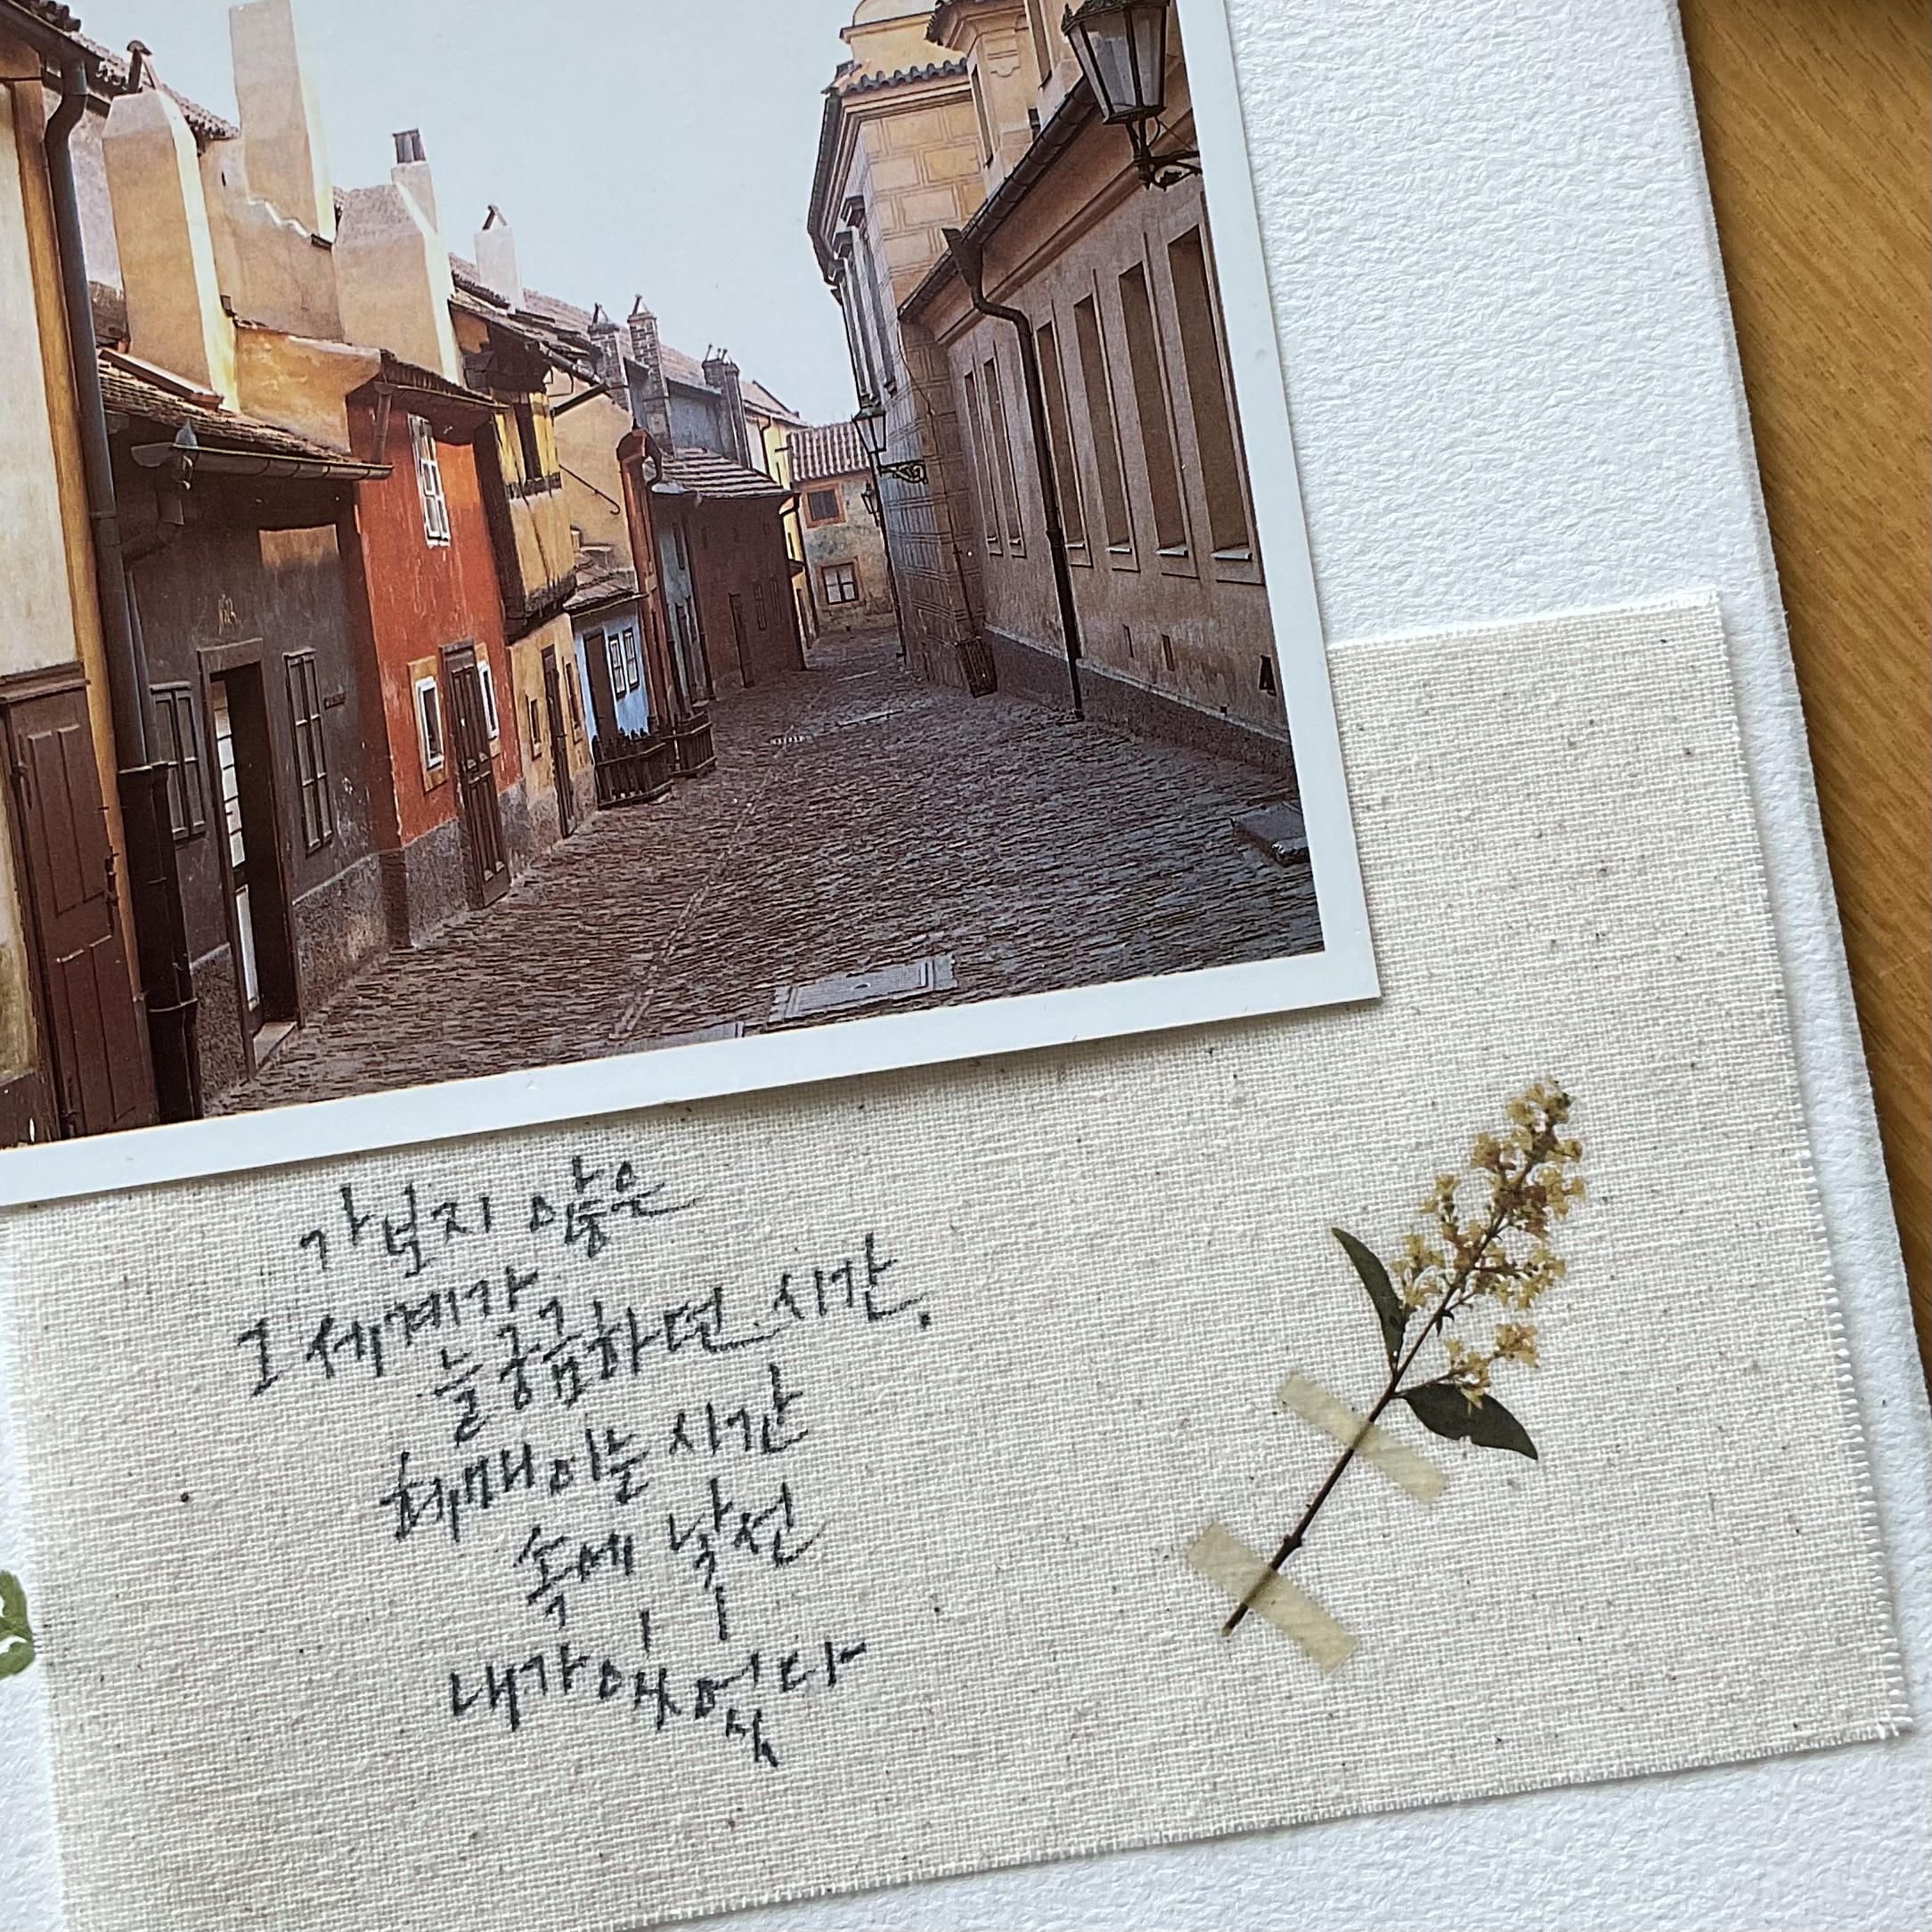 가보지 않은
그 세계가
늘 궁금하던 시간.
헤매이는 시간
속에 낯선
내가 있었다